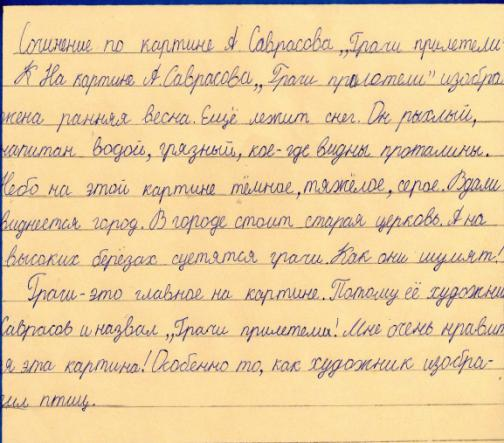 Сочинение по картине А Саврасова „Грачи прилетели
К На картине А.Саврасова „Грачи прилетели" изобра
жена ранняя весна. Ещё лежит снег. Он рыхлый,
напитан водой, грязный, кое-где видны проталины.
Небо на этой картине тёмное, тяжёлое, серое. Вдали
виднеется город. В городе стоит старая церковь. А на
высоких берёзах суетятся грачи. Как они шумят!
Грачи-это главное на картине. Потому её художни
Саврасов и назвал „Грачи прилетели! Мне очень нравит
я эта картина! Особенно то, как художник изобра-
зил птиц.